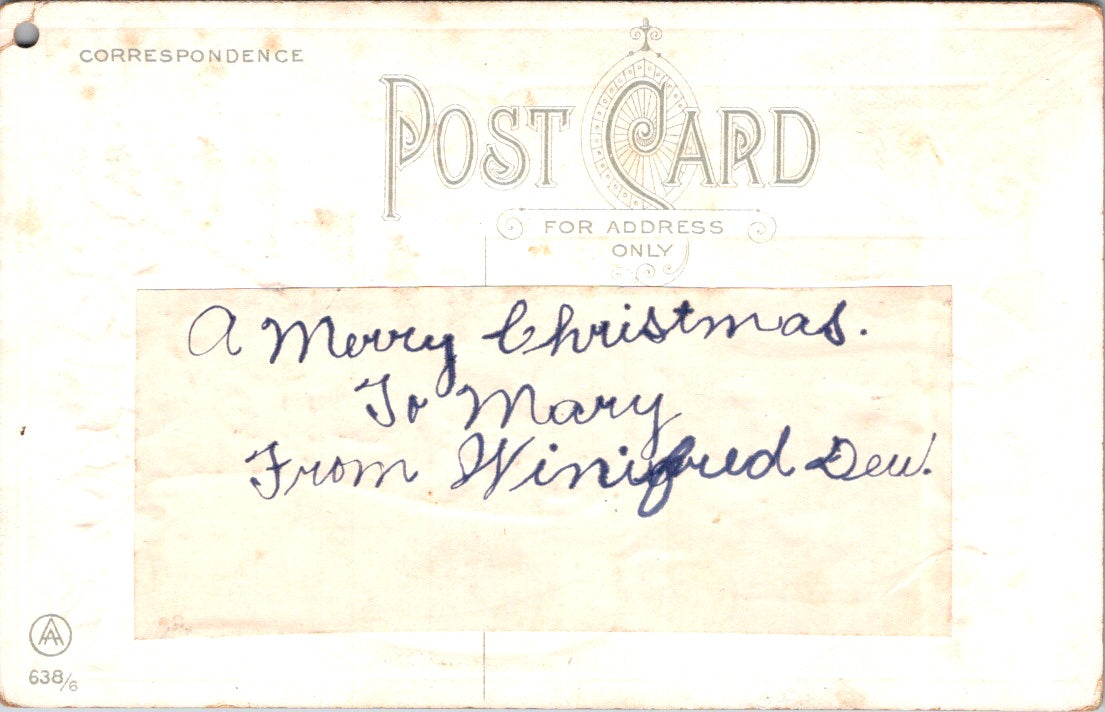 CORRESPONDENCE
POST CARD
FOR ADDRESS
ONLY
A Merry Christmas.
To Mary
From Winifred Dew.
638/6